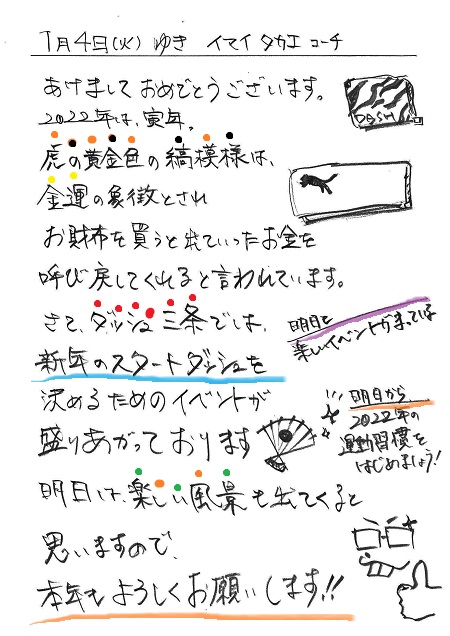 1月4日(火) ゆき イマイ タカエ コーチ
あけまして おめでとうございます。
2022年は、寅年。
虎の黄金色の縞模様は、
金運の象徴とされ
お財布を買うと出ていったお金を
呼び戻してくれると言われています。
さて、ダッシュ三条では、
新年のスタートダッシュを
決めるためのイベントが
盛りあがっております
明日は、楽しい風景も出てくると
思いますので、
本年も よろしくお願いします!!
DASH
明日も
楽しいイベントがまっている
明日から
2022年の
運動習慣を
はじめましょう!